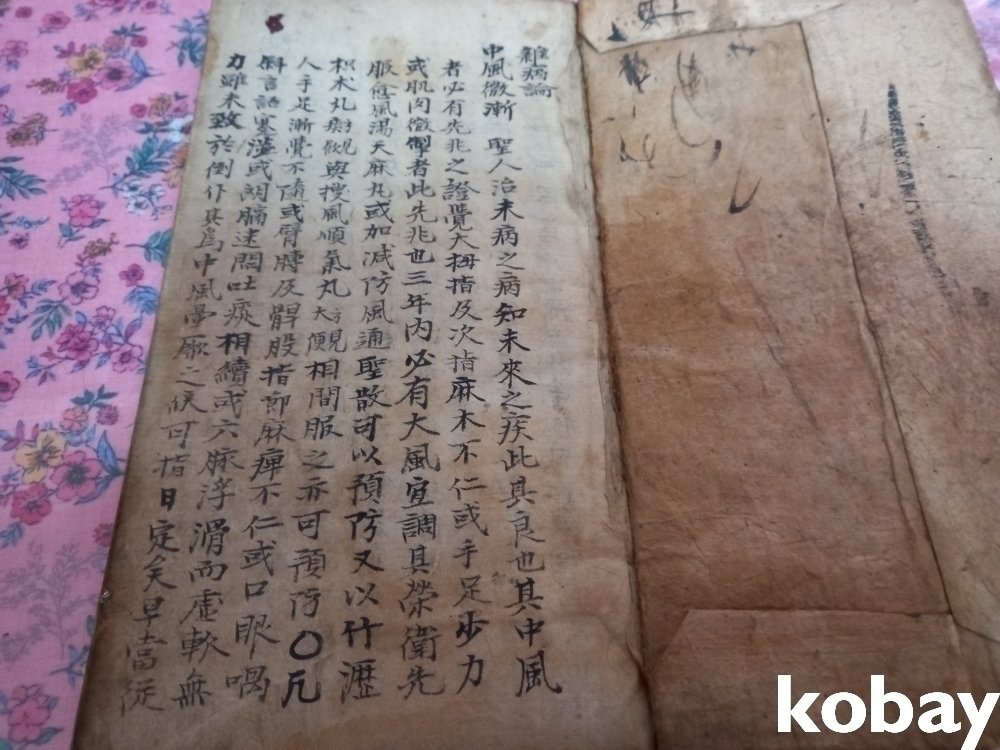 雜病論
中風微漸 聖人治未病之病知未來之疾此其良也其中風
者必有先兆之證覺大拇指及次指麻木不仁或手足步力
或肌肉微掣者此先兆也三年內必有大風宜調其榮衛先
服愈風湯天麻丸或加減防風通聖散可以預防又以竹瀝
枳朮丸與搜風順氣丸大便相間服之亦可預防〇凡
人手足漸覺不隨或臂膊及髀股指節麻痺不仁或口眼喎
斜言語蹇澁或胸膈迷悶吐痰相續或六脉浮滑而虛軟無
力雖未致於倒仆其爲中風暈厥之候可指日定矣早當從
kobay